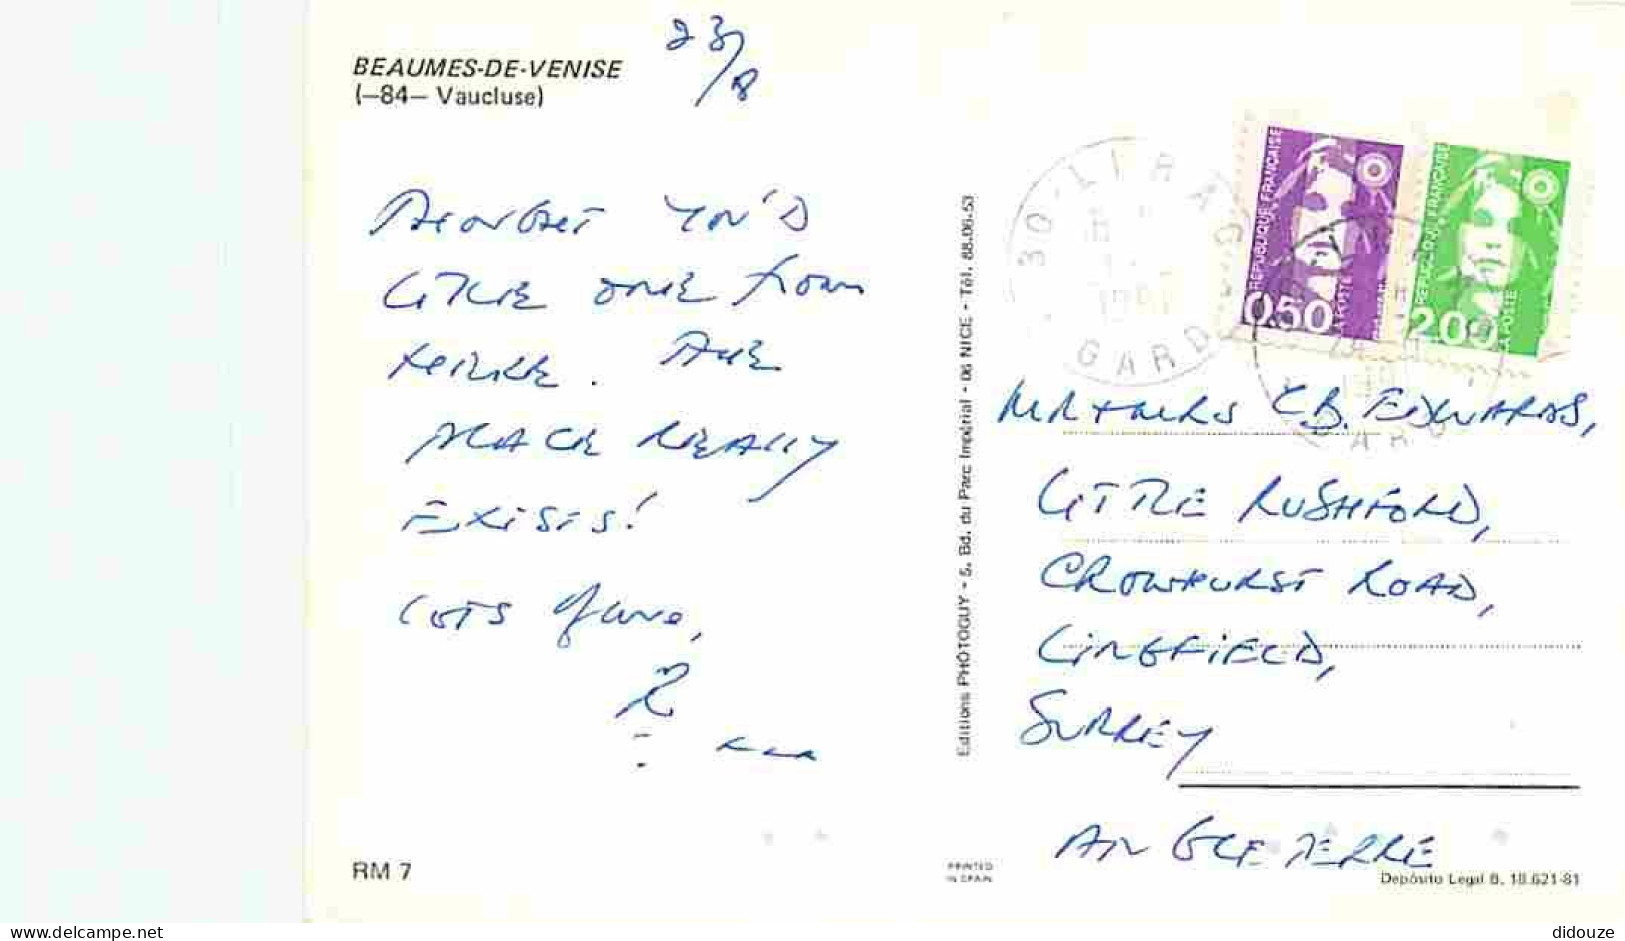 BEAUMES-DE-VENISE
(—84— Vaucluse)
23/8
THOUGHT YOU'D
LIKE ONE from
HERE. THE
PLACE REALLY
EXISTS!
LOTS of love,
RM 7
Editions PHOTOGUY - 5, Bd. du Parc Impérial - 06 NICE - Tél. 88.06.53
PRINTED
IN SPAIN
30-LIRAC
GARD
REPUBLIQUE FRANÇAISE
0,50
LA POSTE
REPUBLIQUE FRANÇAISE
2,00
LA POSTE
MR + MRS C.B. EDWARDS,
LITTLE RUSHFORD,
CROWHURST ROAD,
LINGFIELD,
SURREY
ANGLETERRE
Depósito Legal B. 18.621-81
delcampe.net
didouze